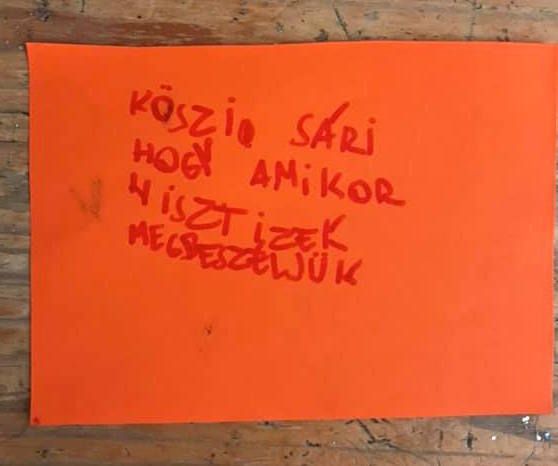 KÖSZI, SÁRI
HOGY AMIKOR
HISZTIZEK
MEGBESZÉLJÜK